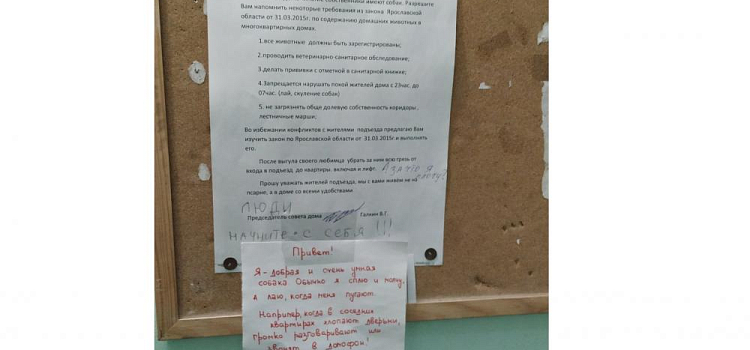 собственники имеют собак. Разрешите
Вам напомнить некоторые требования из закона Ярославской
области от 31.03.2015г, по содержанию домашних животных в
многоквартирных домах.
1.все животные должны быть зарегистрированы;
2.проходить ветеринарно-санитарное обследование;
3.делать прививки с отметкой в санитарной книжке;
4.Запрещается нарушать покой жителей дома с 23час. до
07час. (лай, скуление собак)
5. не загрязнять обще долевую собственность коридоры,
лестничные марши.
Во избежании конфликтов с жителями подъезда предлагаю Вам
изучить закон по Ярославской области от 31.03.2015г и выполнять
его.
После выгула своего любимца убрать за ним всю грязь от
входа в подъезд до квартиры включая и лифт.
Прошу уважать жителей подъезда, мы с вами живем не на
псарне, а в доме со всеми удобствами
ЛЮДИ
Председатель совета дома Галкин В.Г.
НАЧНИТЕ С СЕБЯ !!!
Привет!
Я - добрая и очень умная
собака Обычно я сплю и молчу,
а лаю, когда меня пугают
Например, когда в соседних
квартирах хлопают дверьми,
громко разговаривают или
звонят в домофон!